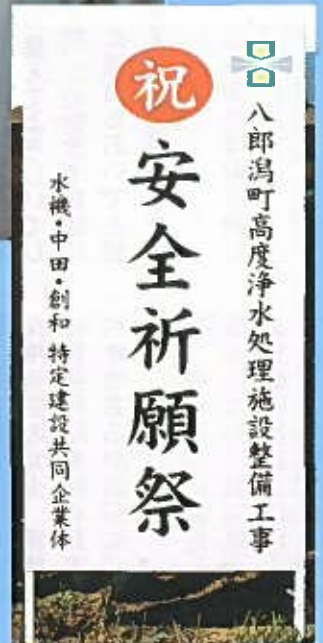 八郎潟町高度浄水処理施設整備工事
祝
安全祈願祭
水機・中田・創和 特定建設共同企業体